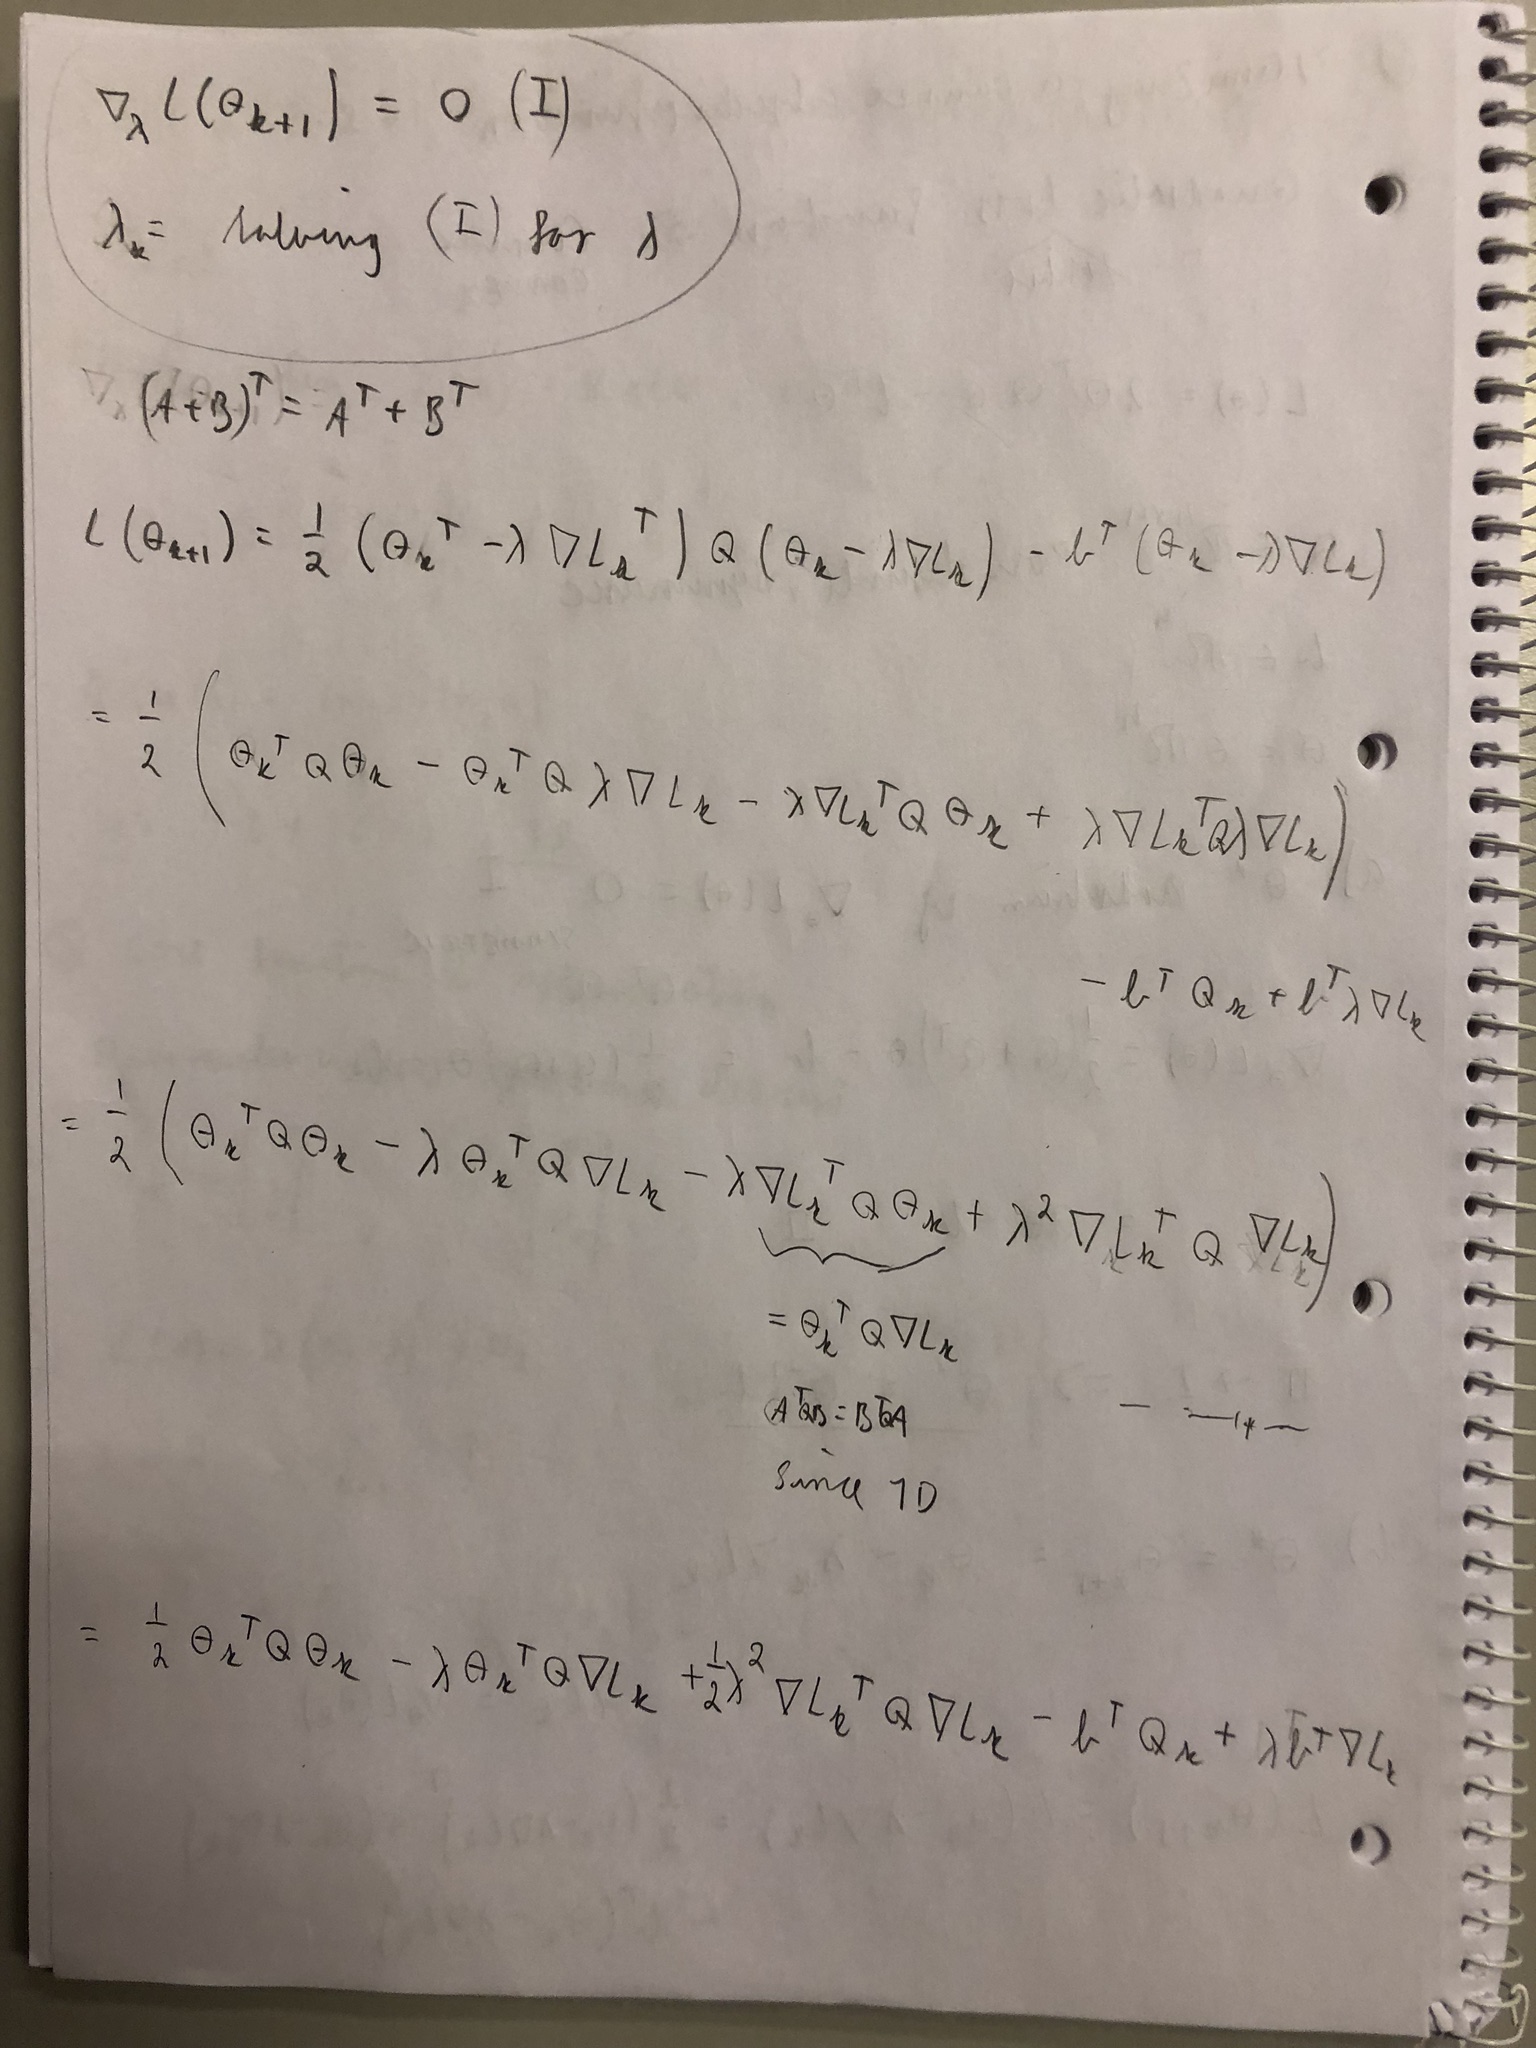 ∇_λ L(θ_{k+1}) = 0 (I)
λ_k = solving (I) for λ
(A+B)^T = A^T + B^T
L(θ_{k+1}) = 1/2 (θ_k^T - λ∇L_k^T) Q (θ_k - λ∇L_k) - b^T (θ_k - λ∇L_k)
= 1/2 (θ_k^T Q θ_k - θ_k^T Q λ∇L_k - λ∇L_k^T Q θ_k + λ∇L_k^T Q λ∇L_k)
- b^T Q_k + b^T λ∇L_k
= 1/2 (θ_k^T Q θ_k - λ θ_k^T Q ∇L_k - λ∇L_k^T Q θ_k + λ^2 ∇L_k^T Q ∇L_k)
= θ_k^T Q ∇L_k
A^T QB = B^T QA
Since 1D
= 1/2 θ_k^T Q θ_k - λ θ_k^T Q ∇L_k + 1/2 λ^2 ∇L_k^T Q ∇L_k - b^T Q_k + λ b^T ∇L_k